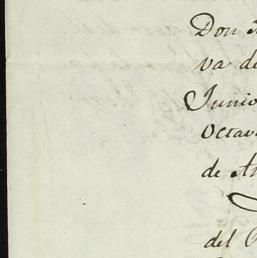 Don
va de
Junio
Octav
de An
del